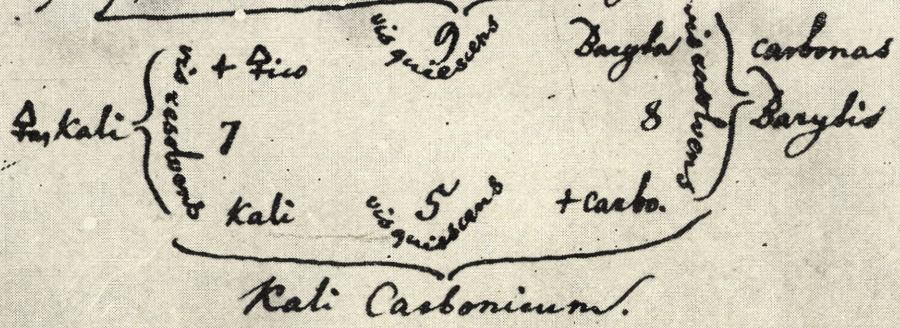 vis quiescens
9
+ 🜍ico
Baryta
vis resolvens
carbonas
Barytis
Kali
vis resolvens
7
8
Kali
vis quiescens
5
+ carbo.
Kali Carbonicum.